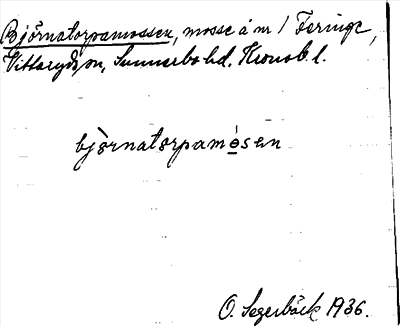 Björnatorpamossen, mosse å nr 1 Feringe,
Vittaryds sn, Sunnerbo hd. Kronob. l.
bjò̀rnatorpamó̱sen
O. Segerbäck 1936.